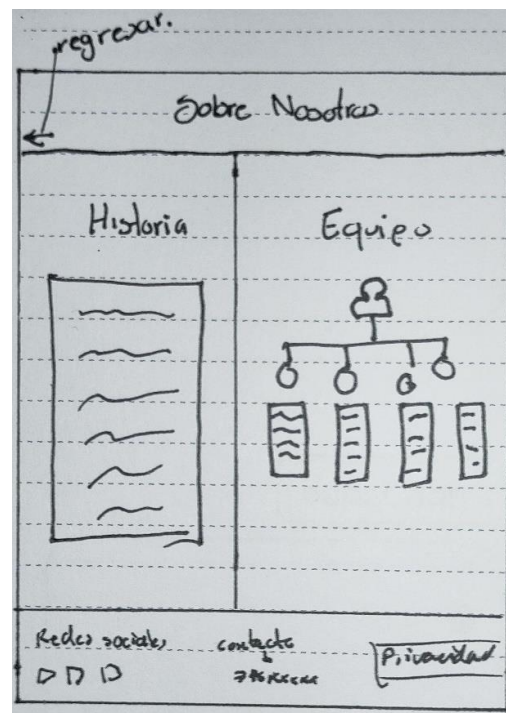 regresar.
Sobre Nosotros
Historia
Equipo
Redes sociales
contacto
Privacidad